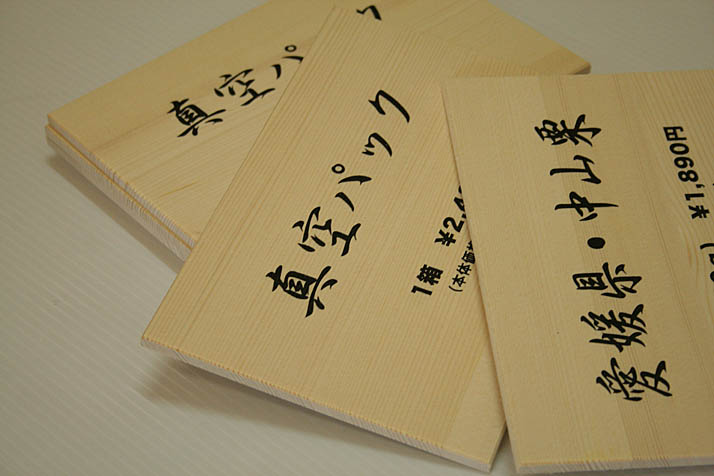 真空パック
真空パック
1箱 ¥2,4
(本体価格
愛媛県・中山栗
¥1,890円